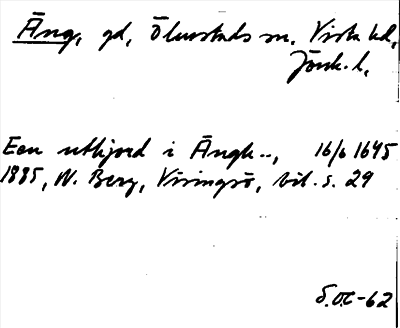 Äng, gd, Ölmstads sn. Vista hd,
Jönk. l,
Een utkjord i Ängh..., 16/6 1645
1885, W. Berg, Visingsö, bil. s. 29
-62